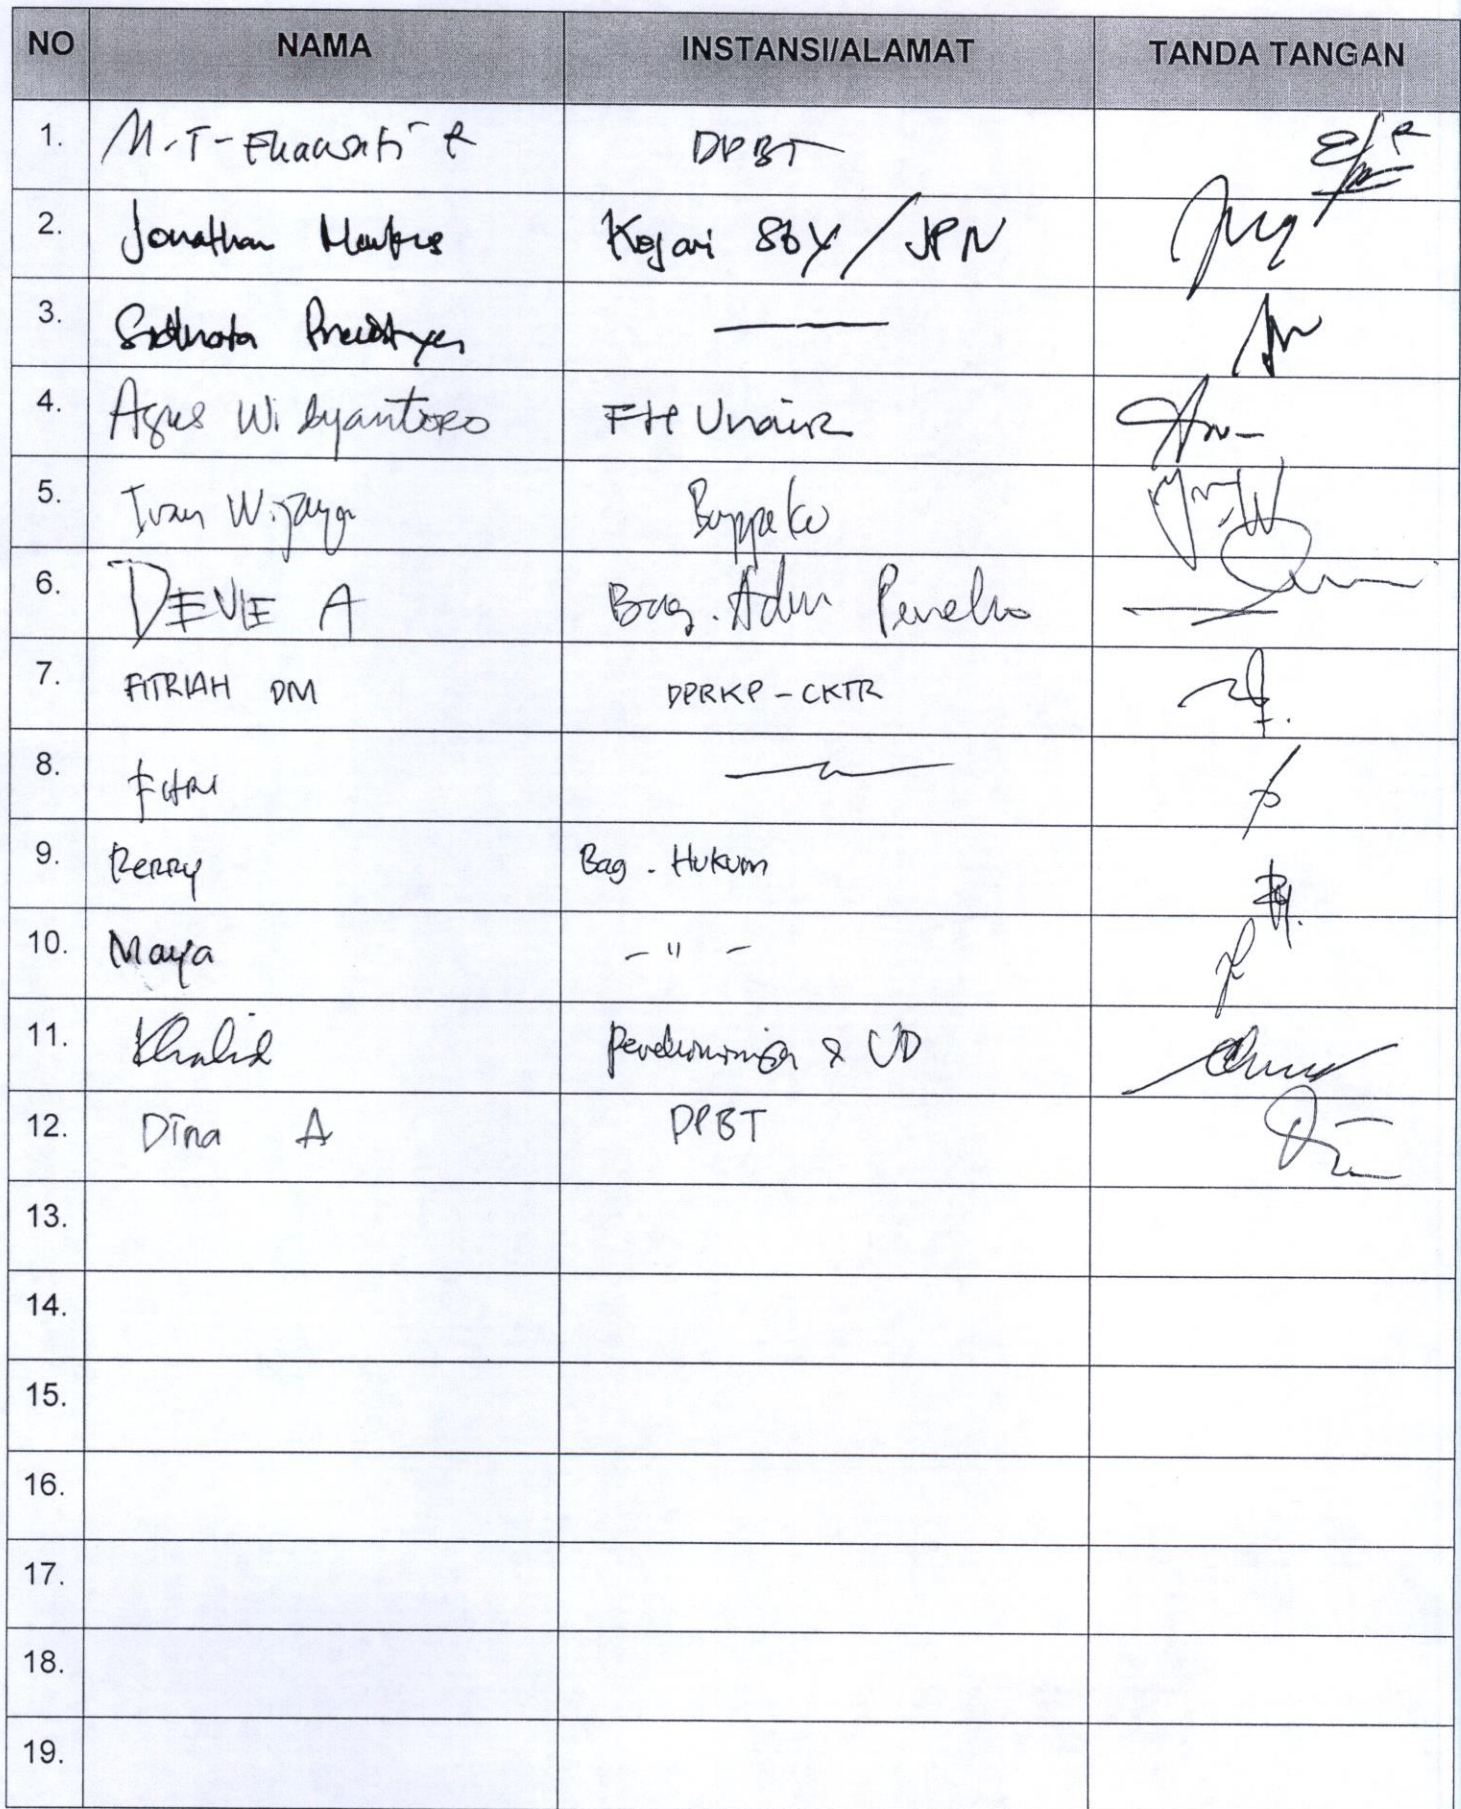 NO NAMA INSTANSI/ALAMAT TANDA TANGAN
1. M.T-Ekawati R DPBT
2. Jonathan Markus Kejari Sby / JPN
3.
4. Agus Widyantoro FH Unair
5. Ivan Wijaya Bappeko
6. DEVIE A Bag. Adm
7. FITRIAH DM DPRKP-CKTR
8.
9. Rerry Bag. Hukum
10. Maya - " -
11. Khalid & UD
12. Dina A DPBT
13.
14.
15.
16.
17.
18.
19.